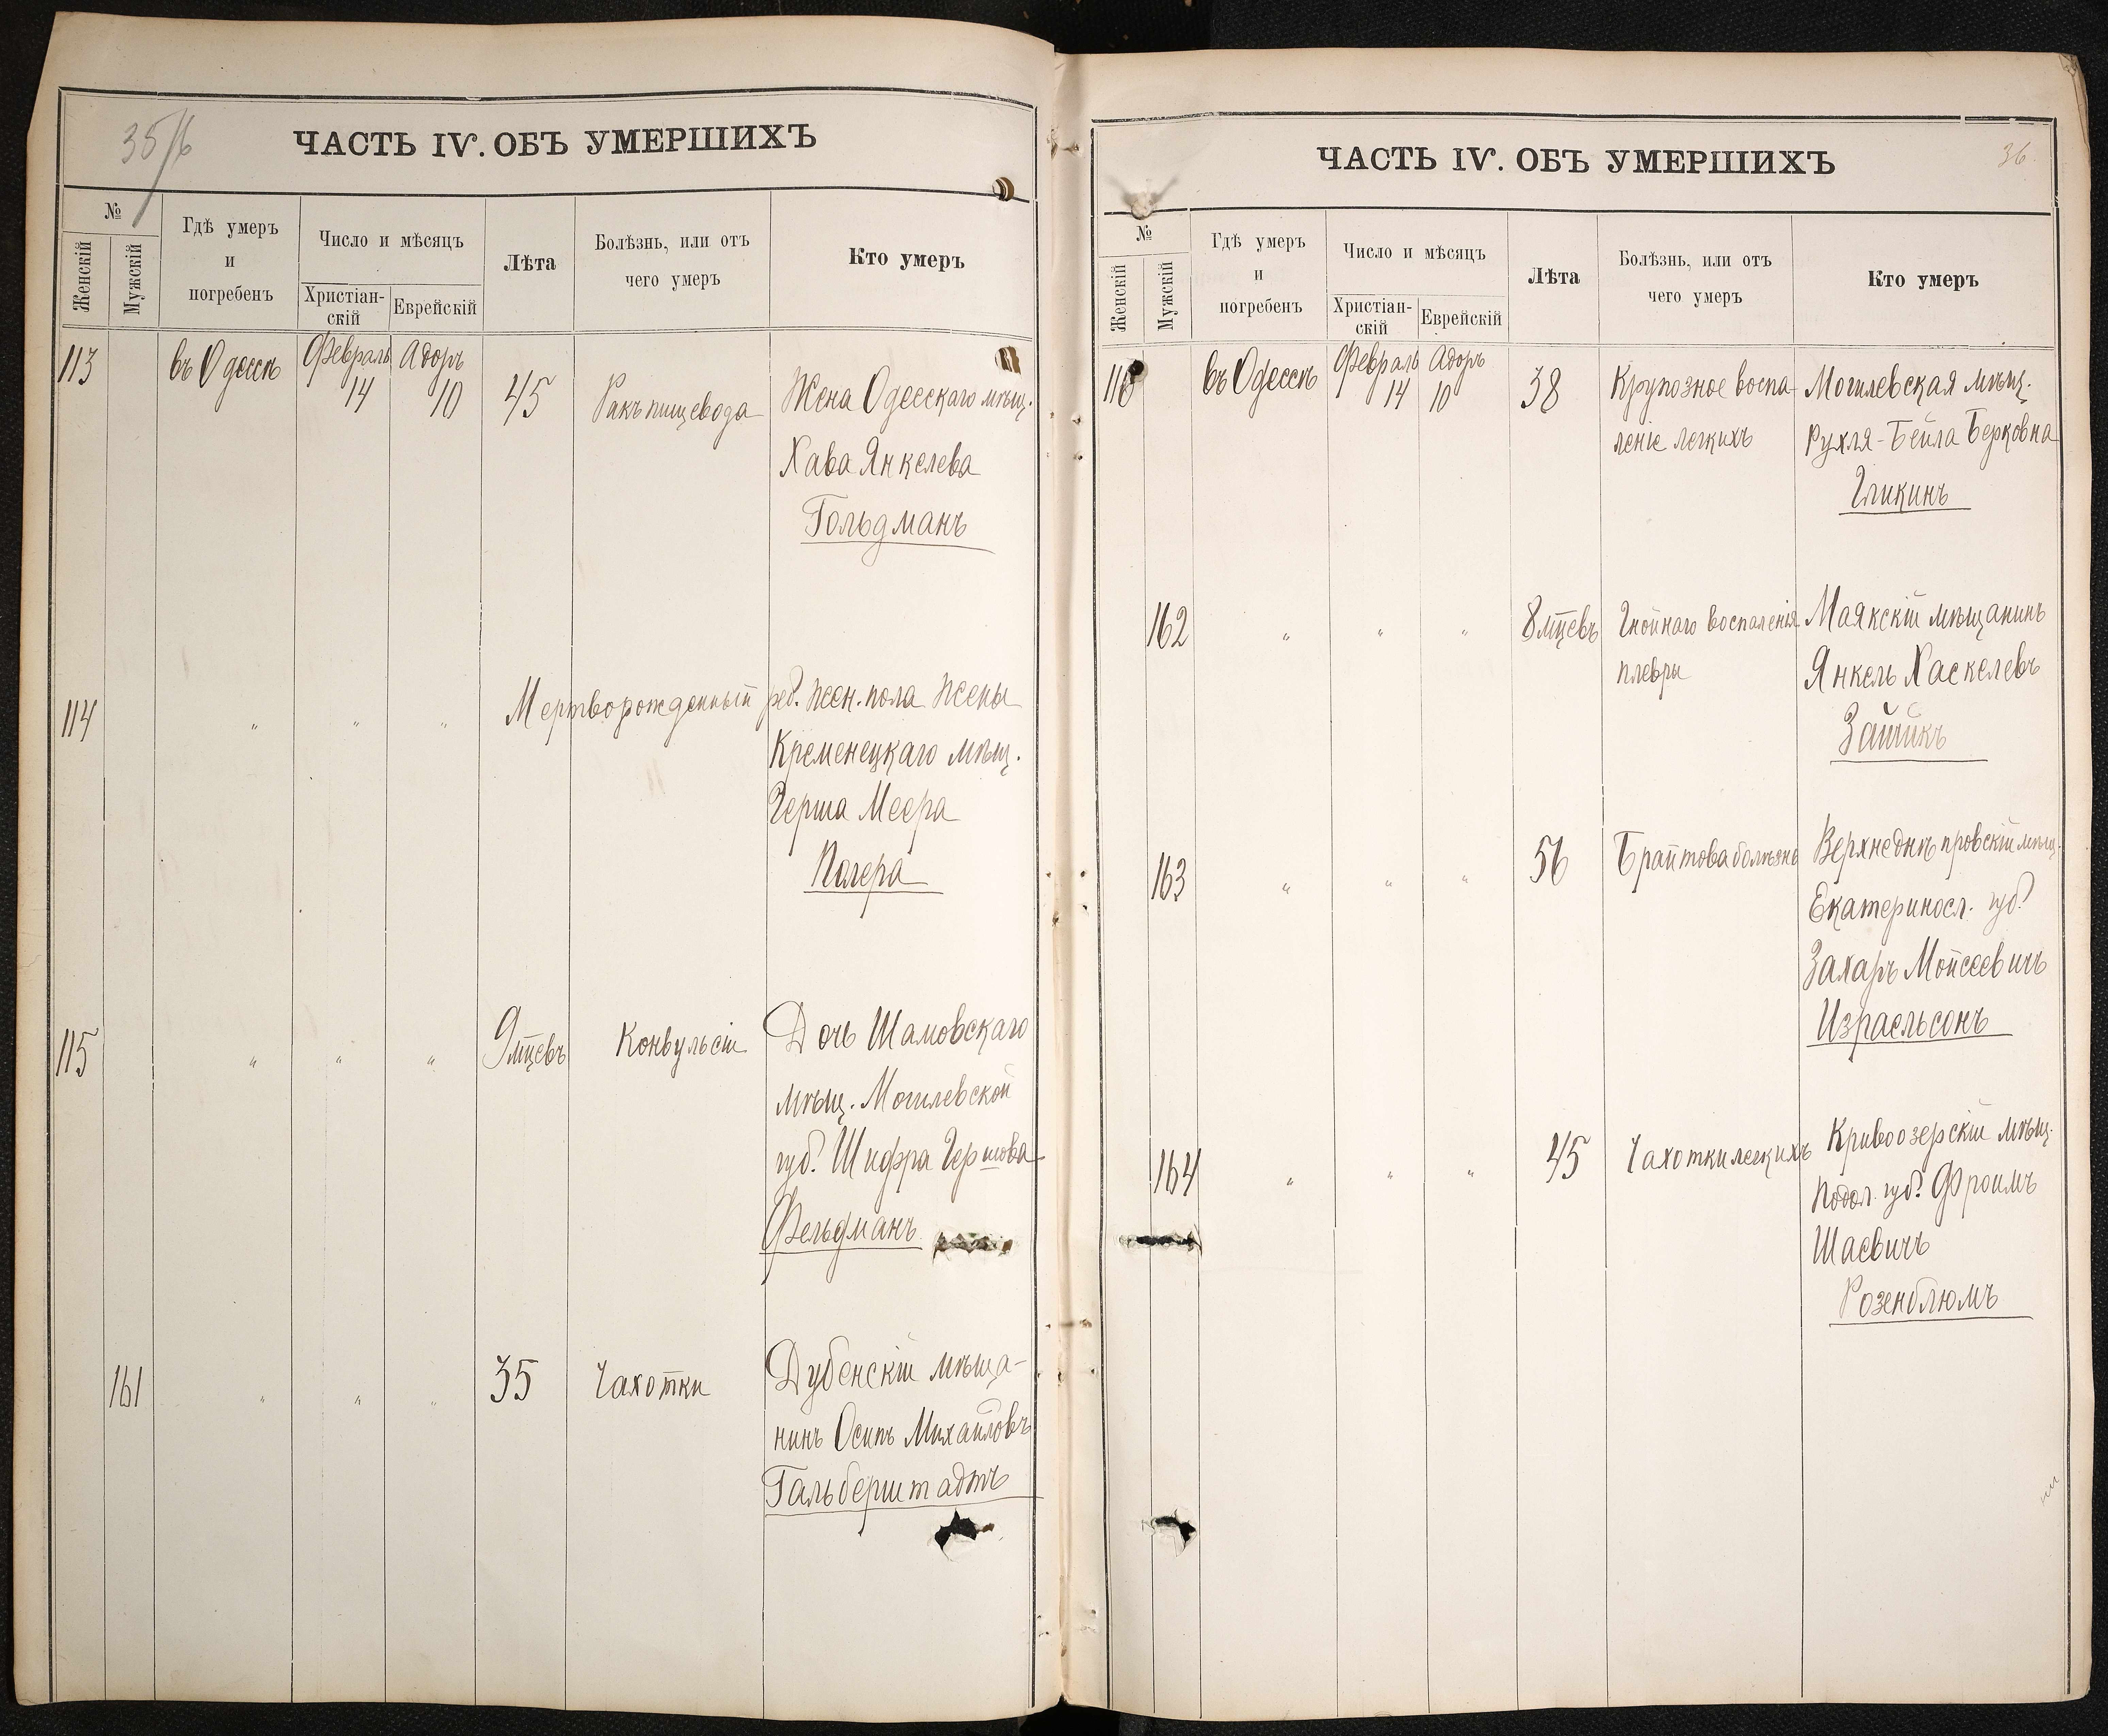 35/б
ЧАСТЬ IV. ОБЪ УМЕРШИХЪ
№
Женскій
Мужскій
Гдѣ умеръ
и
погребенъ
Число и мѣсяцъ
Христіан-
скій
Еврейскій
Лѣта
Болѣзнь, или отъ
чего умеръ
Кто умеръ
113 въ Одессѣ Февраль Адоръ
14 10 45 Ракъ пищевода Жена Одесскаго мѣщ.
Хава Янкелева
Гольдманъ
114 " " " Мертворожденный реб. жен. пола жены
Кременецкаго мѣщ.
Герша Меера
Полера
115 " " " 9 мцевъ Конвульсіи Дочь Шамовскаго
мѣщ. Могилевской
губ. Шифра Гершова
Фельдманъ
161 " " " 35 Чахотки Дубенскій мѣща-
нинъ Осипъ Михайловъ
Гальберштадтъ
ЧАСТЬ IV. ОБЪ УМЕРШИХЪ
36.
№
Женскій
Мужскій
Гдѣ умеръ
и
погребенъ
Число и мѣсяцъ
Христіан-
скій
Еврейскій
Лѣта
Болѣзнь, или отъ
чего умеръ
Кто умеръ
116 въ Одессѣ Февраль Адоръ
14 10 38 Крупозное воспа- Могилевская мѣщ.
леніе легкихъ Рухля-Бейла Берковна
Гликинъ
162 " " " 8 мцевъ Гнойнаго воспаленія Маякскій мѣщанинъ
плевры Янкель Хаскелевъ
Зайчикъ
163 " " " 56 Брайтова болѣзнь Верхнеднѣпровскій мѣщ.
Екатериносл. губ.
Захаръ Мойсеевичъ
Израельсонъ
164 " " " 45 Чахотки легкихъ Кривоозерскій мѣщ.
Подол. губ. Фроимъ
Шаевичъ
Розенблюмъ